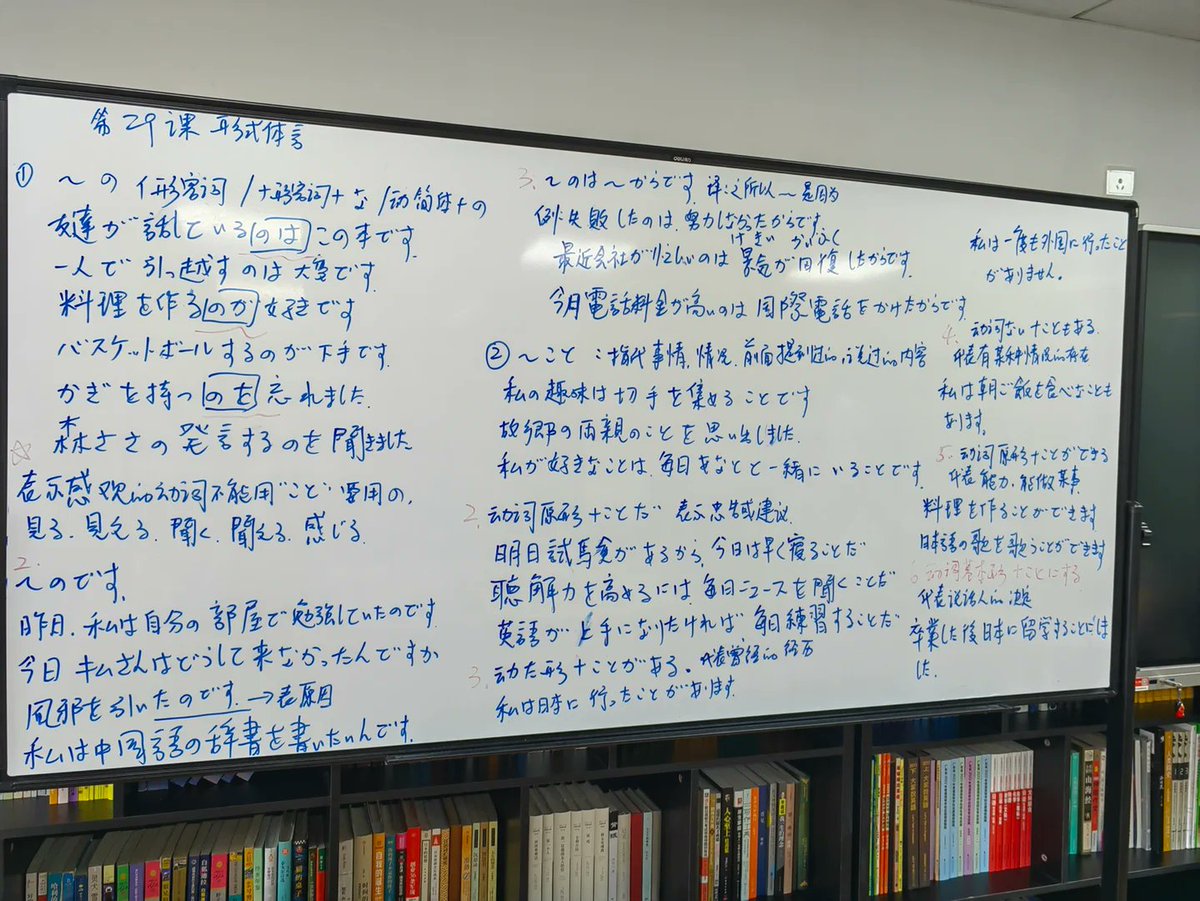 第29课 形式体言
① ～の イ形容词 / ナ形容词+な / 动简体+の
友達が話しているのはこの本です。
一人で引っ越すのは大変です。
料理を作るのが好きです
バスケットボールするのが下手です.
かぎを持つのを忘れました.
森ささの発言するのを聞きました
表示感 的动词不能用"こと" 要用の.
見る. 見える. 聞く. 聞える. 感じる.
2.
～のです.
昨日. 私は自分の部屋で勉強していたのです.
今日キムさんはどうして来なかったんですか
風邪を引いたのです. →表原因
私は中国語の辞書を書いたいんです.
3. ～のは～からです. 译:之所以～是因为
例:失敗したのは.努力しなかったからです.
けいき かいふく
最近会社が忙しいのは景気が回復したからです.
今月電話料金が高いのは国際電話をかけたからです
② ～こと :指代事情,情况.前面提到过的,说过的内容
私の趣味は切手を集めることです
故郷の両親のことを思い出しました.
私が好きなことは.毎日あなたと一緒にいることです.
2. 动词原形+ことだ 表示忠告或建议.
明日試験があるから,今日は早く寝ることだ
聴解力を高めるには毎日ニュースを聞くことだ
英語が上手になりたければ毎日練習することだ
3. 动た形+ことがある. 代表曾经的行为
私は日本に行ったことがあります.
私は一度も外国に行ったこと
がありません.
4. 动词ない+こともある.
代表有某种情况的存在
私は朝ご飯を食べないことも
あります.
5. 动词原形+ことができる
代表能力.能做某事
料理を作ることができます
日本語の歌を歌うことができます
6 动词基本形+ことにする
代表说话人的决定
卒業した後日本に留学することにしま
した.
deli
山海经